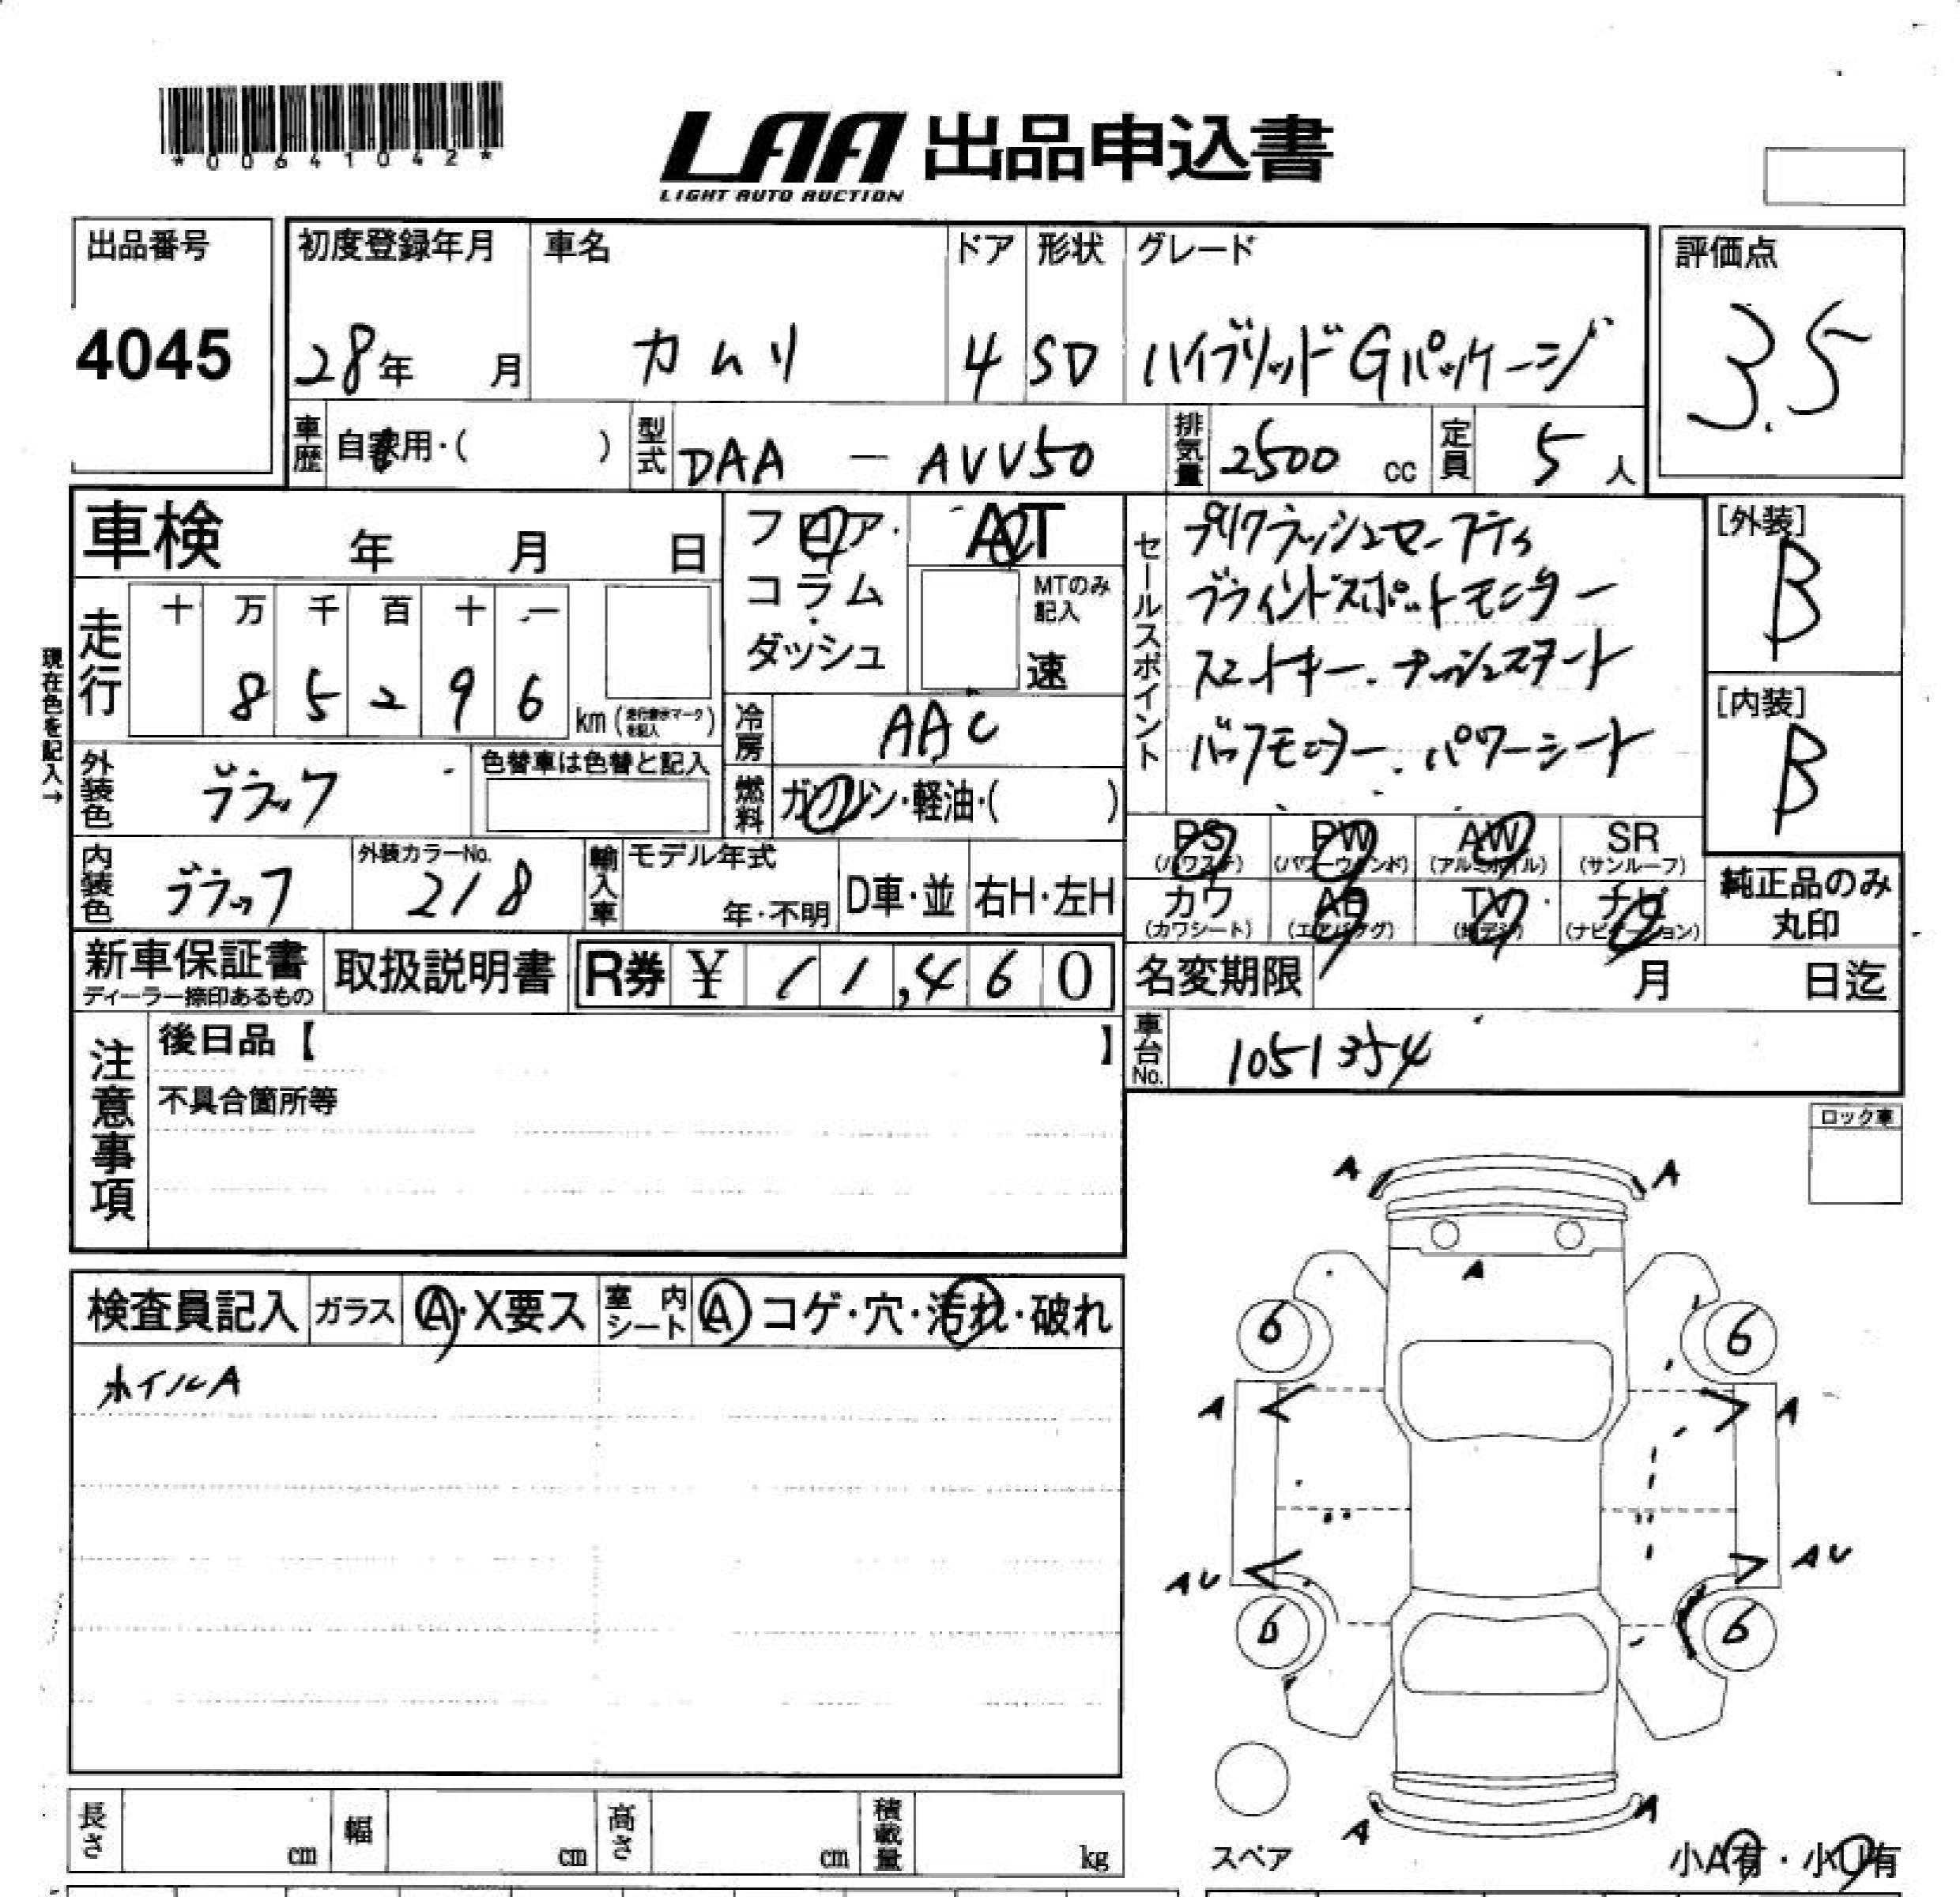 *00641042*
LAA 出品申込書
LIGHT AUTO AUCTION
出品番号
4045
初度登録年月
28年 月
車名
カムリ
ドア
4
形状
SD
グレード
ハイブリッドGパッケージ
評価点
3.5
車歴
自家用・( )
型式
DAA - AVV50
排気量
2500 cc
定員
5人
車検 年 月 日
フロア・
コラム
ダッシュ
AT
MTのみ
記入
速
セールスポイント
プリクラッシュセーフティ
ブラインドスポットモニター
スマートキー.プッシュスタート
バックモニター.パワーシート
[外装]
B
[内装]
B
現在色を記入→
走行
十 万 千 百 十 一
8 5 2 9 6
km
冷房
AAC
外装色
ブラック
色替車は色替と記入
燃料
ガソリン・軽油・( )
内装色
ブラック
外装カラーNo.
218
輸入車
モデル年式
年・不明
D車・並
右H・左H
PS
(パワステ)
PW
(パワーウィンド)
AW
(アルミホイル)
SR
(サンルーフ)
カワ
(カワシート)
AB
(エアバッグ)
TV
(地デジ)
ナビ
(ナビゲーション)
純正品のみ
丸印
新車保証書
ディーラー捺印あるもの
取扱説明書
R券 ¥ 11,460
名変期限 月 日迄
車台No.
1051354
注意事項
後日品【 】
不具合箇所等
ロック車
検査員記入
ガラス
A・X要ス
室内シート
A コゲ・穴・汚れ・破れ
ホイルA
A A
A
6 6
A A
AU AU
6 6
A A
スペア
小A有・小U有
長さ cm
幅 cm
高さ cm
積載量 kg